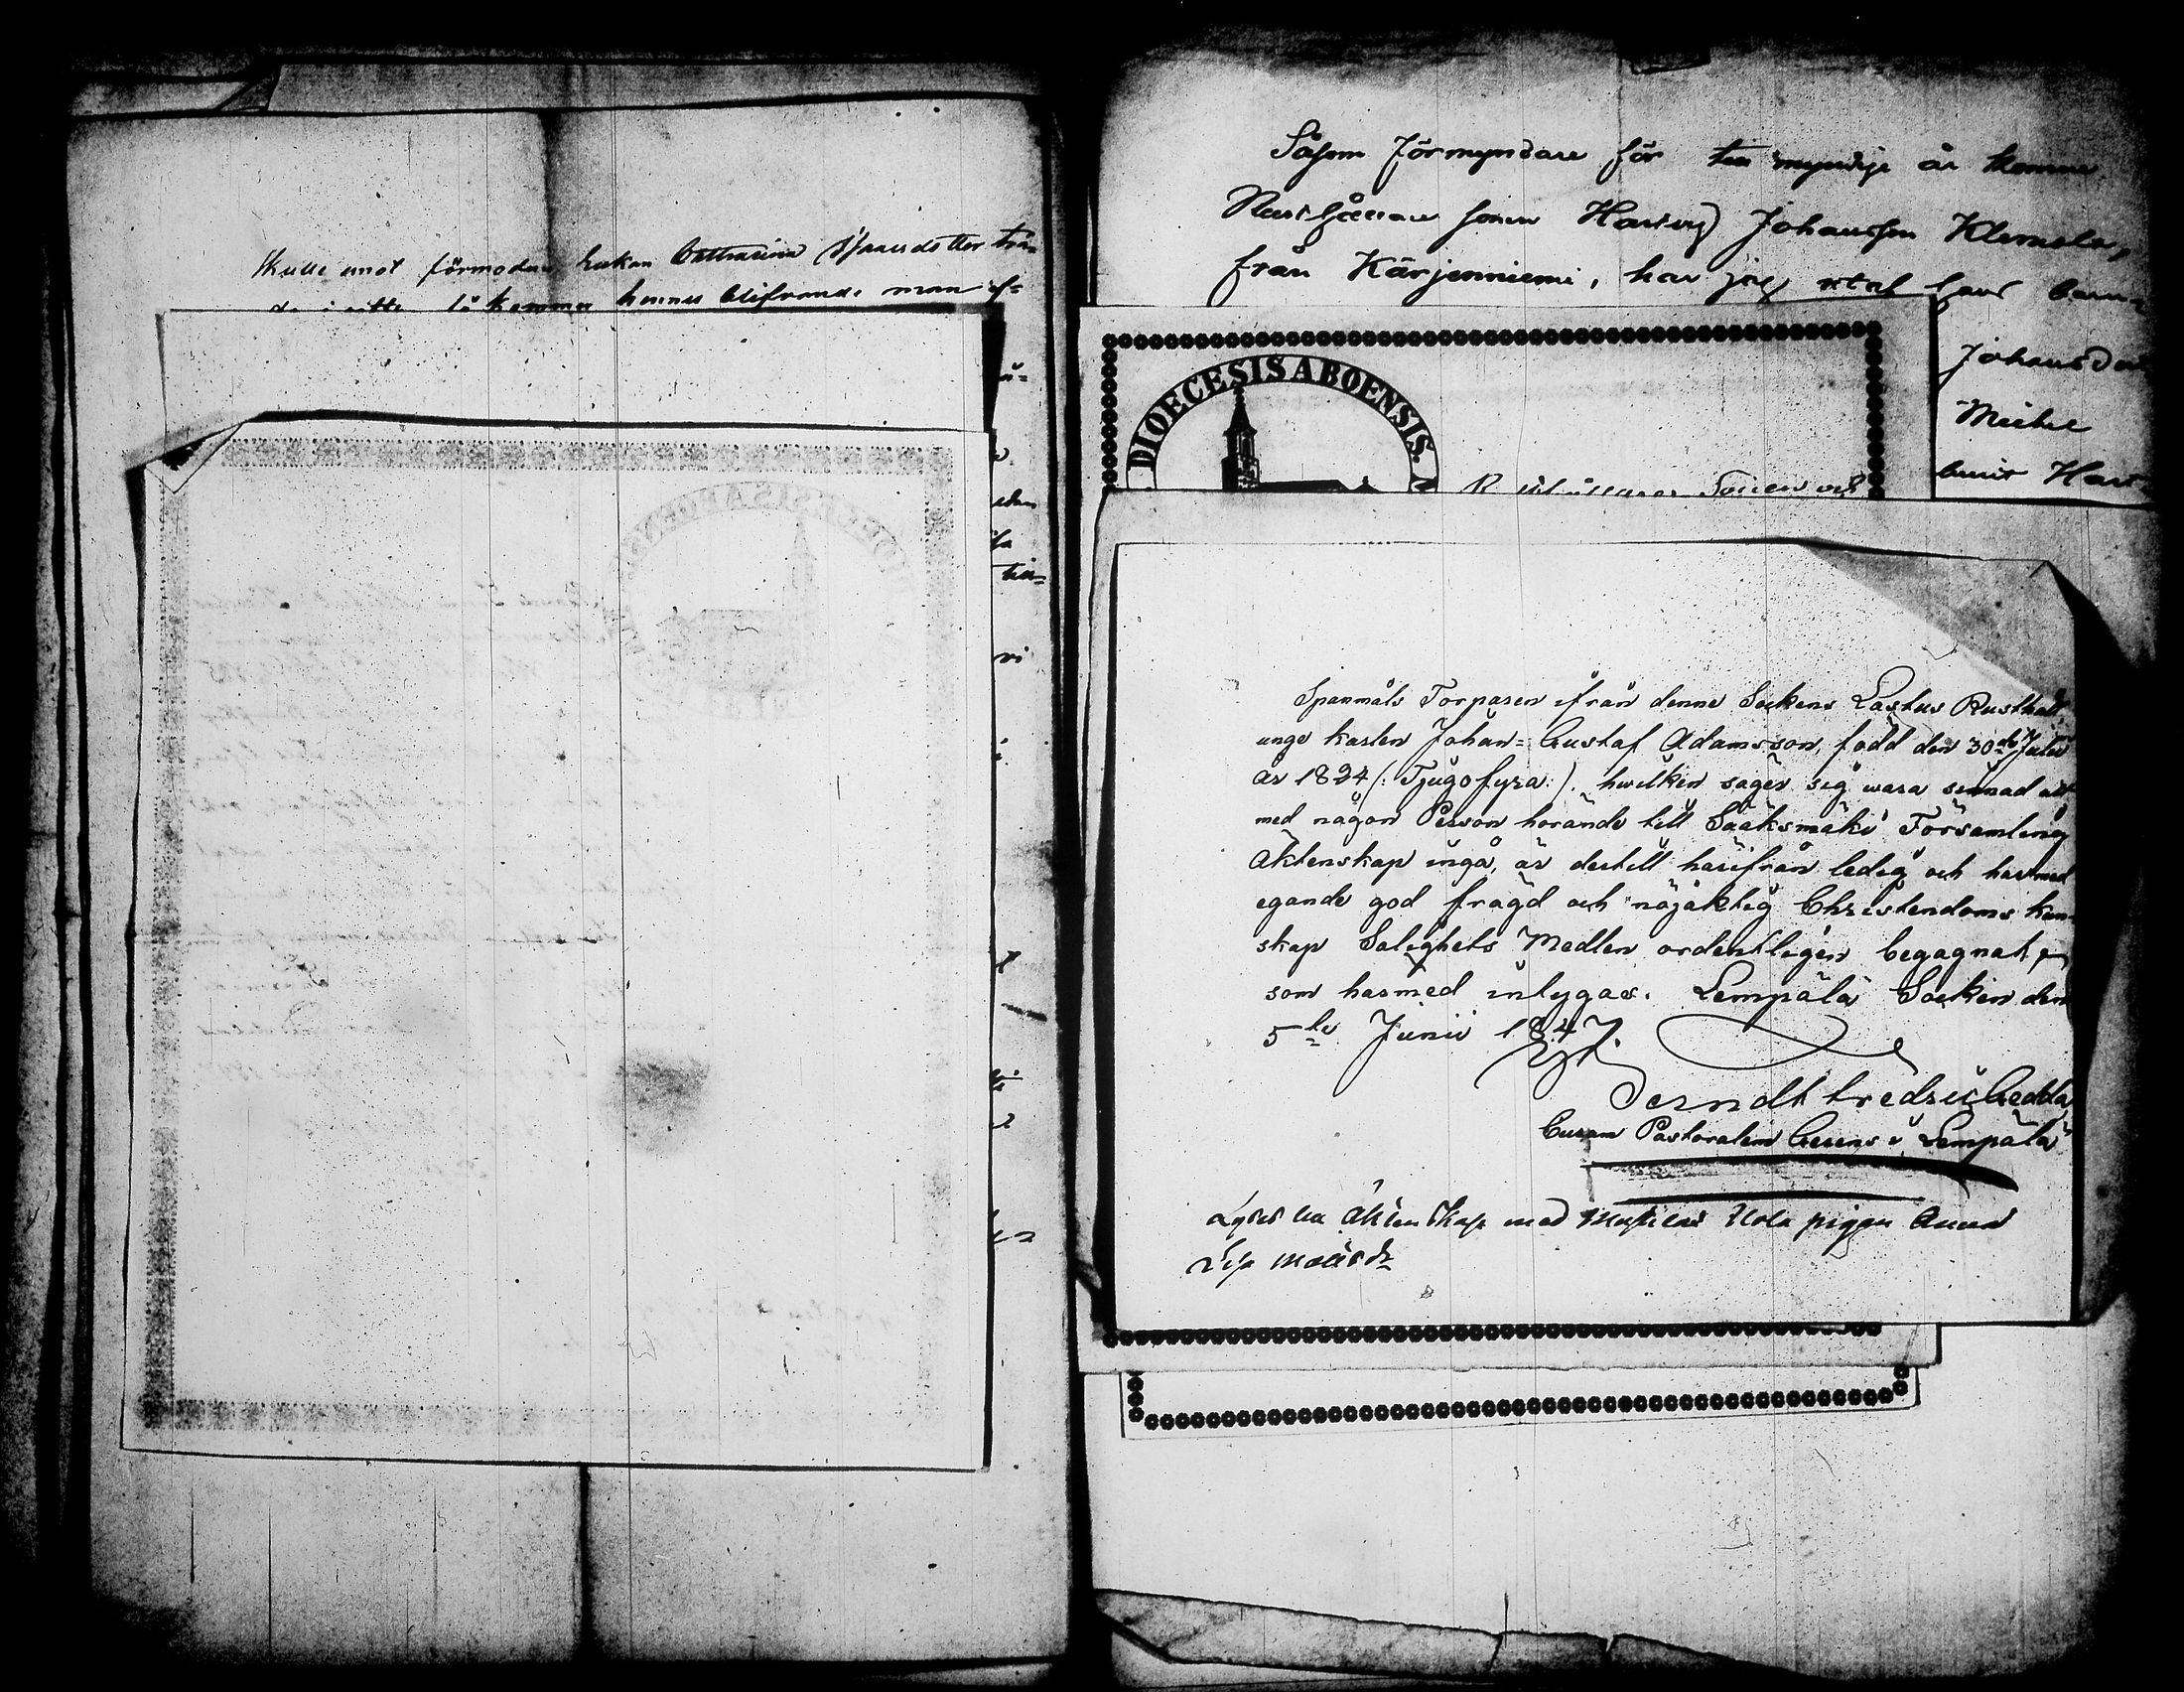 Skulle emot förmodan Enkan Catharina Isaacsdotter trä-
da i gifte, så kommer hennes blifvande man ef-
Såsom Förmyndare för den myndige år komne
Rusthållare sonen Hartvig Johansson Klemola,
från Kärjenniemi, har jag utaf hans barn-
Johansdot
Michel
bemt Hart-
DIOECESIS ABOENSIS.
Rusthållares Sonen och
Spanmåls Torparen ifrån denne Sockens Lastus Rusthåll,
unge karlen Johan=Gustaf Adamsson, född den 30de Julii
år 1824 (: Tjugofyra:). hwilken säger sig wara sinnad att
med någon Person hörande till Sääksmäki Församling
Äktenskap ingå, är dertill härifrån ledig och har med
egande god frägd och nöjaktig Christendoms kun-
skap Salighets Medlen ordentligen begagnat,
som härmed intygas. Lempälä Socken den
5te Junii 1847.
Berndt Fredric Gedda
Curam Pastoralem Gerens i Lempälä
Lyses till Äktenskap med Uola pigan Anna
Lisa Matsdr